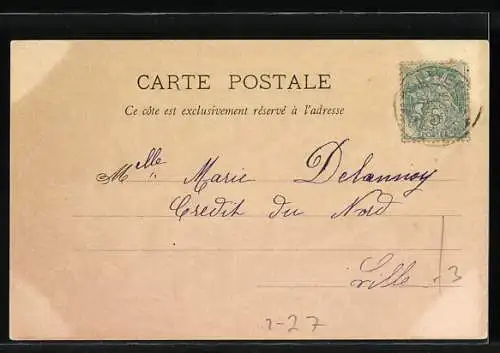 CARTE POSTALE
Ce côte est exclusivement réservé à l'adresse
Melle Marie Delannoy
Credit du Nord
Lille
3
1-27